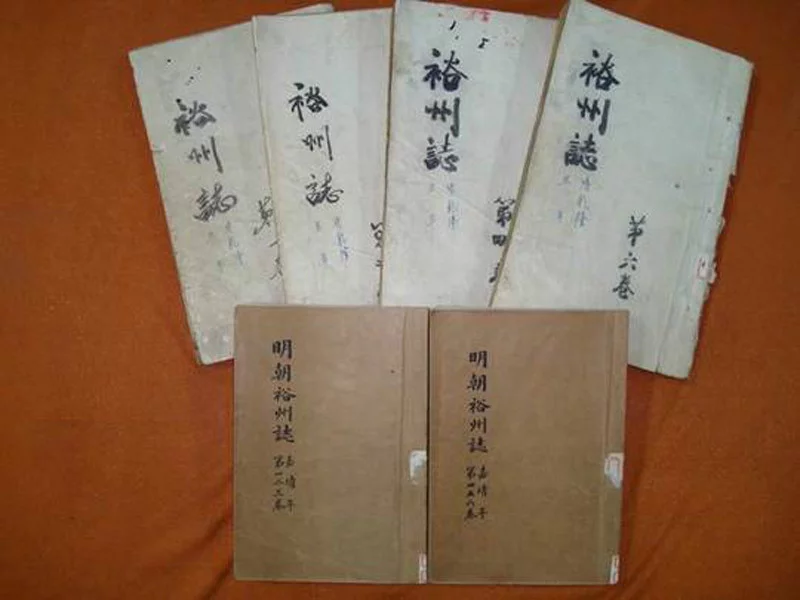 裕州誌
第一卷
裕州誌
裕州誌
乾隆
第四
裕州誌
清乾隆
五年
第六卷
明朝裕州誌
嘉靖年
第一二三卷
明朝裕州誌
嘉靖年
第四五六卷